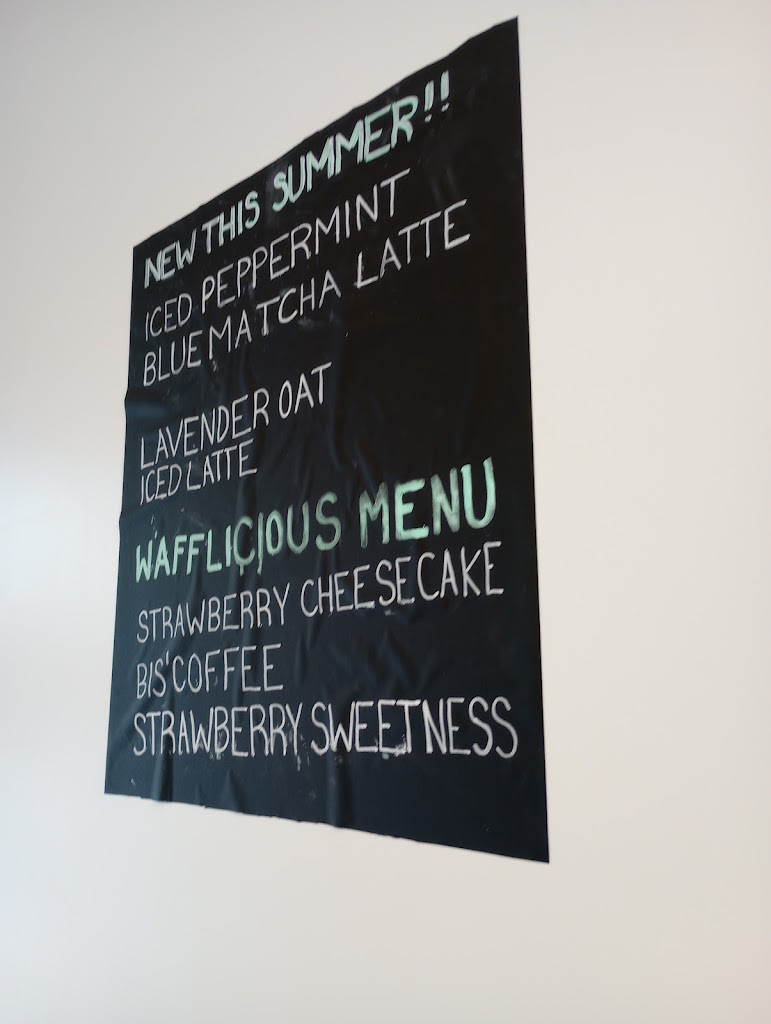 NEW THIS SUMMER!!
ICED PEPPERMINT
BLUE MATCHA LATTE
LAVENDER OAT
ICED LATTE
WAFFLICIOUS MENU
STRAWBERRY CHEESECAKE
BIS'COFFEE
STRAWBERRY SWEETNESS